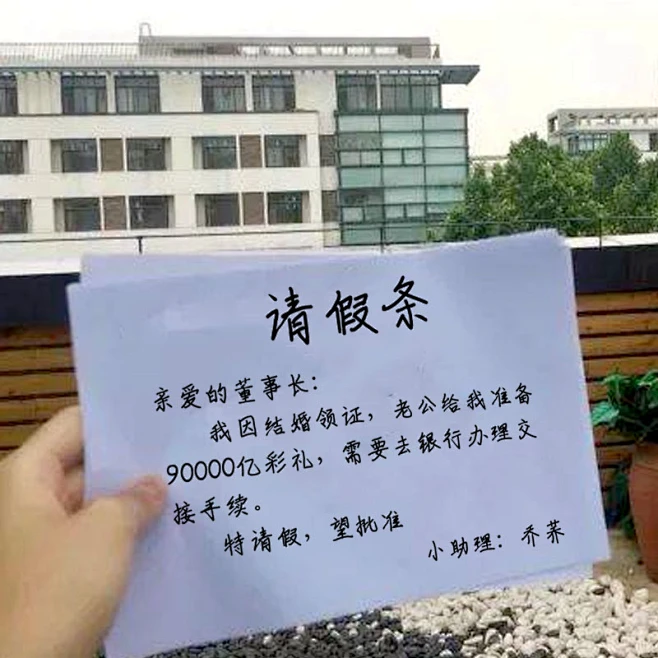 请假条
亲爱的董事长：
我因结婚领证，老公给我准备
90000亿彩礼，需要去银行办理交
接手续。
特请假，望批准
小助理：乔荞